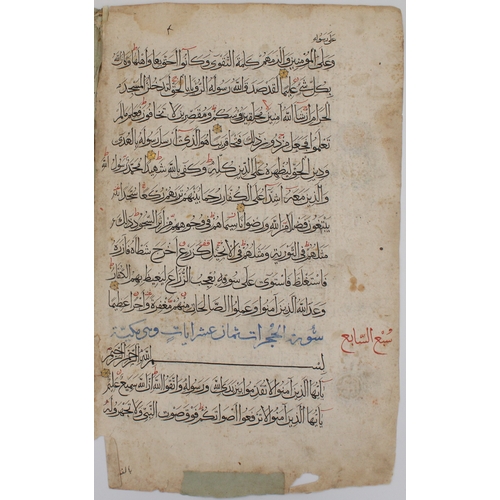 على رسوله
وعلى المؤمنين والزمهم كلمة التقوى وكانوا احق بها واهلها وكان الله
بكل شيء عليما لقد صدق الله رسوله الرؤيا بالحق لتدخلن المسجد
الحرام ان شاء الله امنين محلقين رؤسكم ومقصرين لا تخافون فعلم ما لم
تعلموا فجعل من دون ذلك فتحا قريبا هو الذي ارسل رسوله بالهدى
ودين الحق ليظهره على الدين كله وكفى بالله شهيدا محمد رسول الله
والذين معه اشداء على الكفار رحماء بينهم تريهم ركعا سجدا
يبتغون فضلا من الله ورضوانا سيماهم في وجوههم من اثر السجود ذلك
مثلهم في التورية ومثلهم في الانجيل كزرع اخرج شطاه فازره
فاستغلظ فاستوى على سوقه يعجب الزراع ليغيظ بهم الكفار
وعد الله الذين امنوا وعملوا الصالحات منهم مغفرة واجرا عظيما
سورة الحجرات ثمان عشر ايات وهي مكية
سبع السابع
بسم الله الرحمن الرحيم
يايها الذين امنوا لا تقدموا بين يدي الله ورسوله واتقوا الله ان الله سميع عليم
يايها الذين امنوا لا ترفعوا اصواتكم فوق صوت النبي ولا تجهروا له